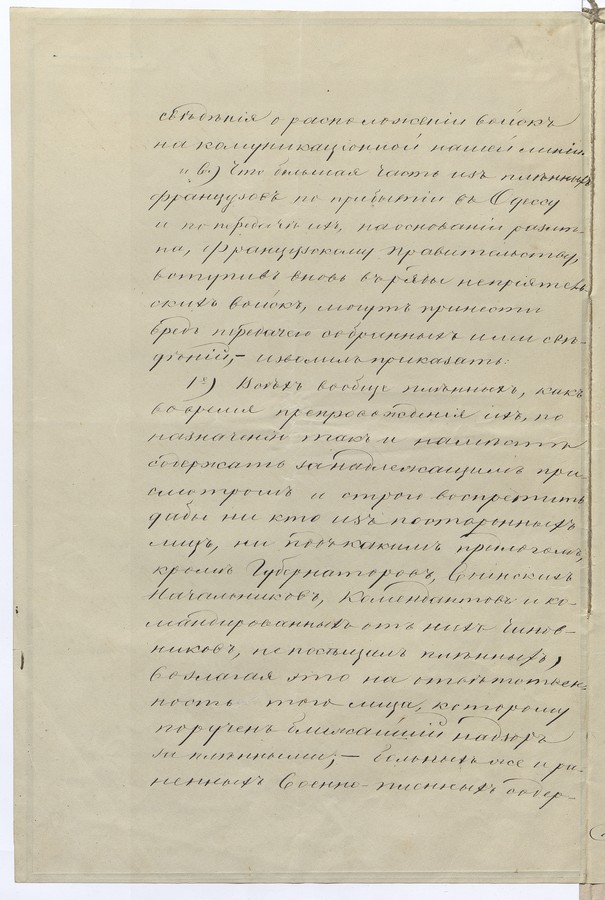 свѣдѣнія о расположеніи войскъ
на комуникаціонной нашей линіи.
и в.) Что большая часть изъ плѣнныхъ
французовъ по прибытіи въ Одессу
и по передачѣ ихъ, на основаніи размѣ-
на, Французскому Правительству,
вступивъ вновь въ ряды непріятель-
скихъ войскъ, могутъ принести
вредъ передачею собранныхъ ими свѣ-
дѣній, – изволилъ приказать:
1е) Всѣхъ вообще плѣнныхъ, какъ
во время препровожденія ихъ, по
назначенію такъ и на мѣстѣ
содержать за надлежащимъ при-
смотромъ и строго воспретить
дабы ни кто изъ постороннихъ
лицъ, ни подъ какимъ предлогомъ,
кромѣ Губернаторовъ, Воинскихъ
Начальниковъ, Комендантовъ и ко-
мандированныхъ отъ нихъ чинов-
никовъ, не посѣщалъ плѣнныхъ,
возлагая это на отвѣтствен-
ность того лица, которому
порученъ ближайшій надзоръ
за плѣнными; – больныхъ же и ра-
ненныхъ Военно-плѣнныхъ содер-